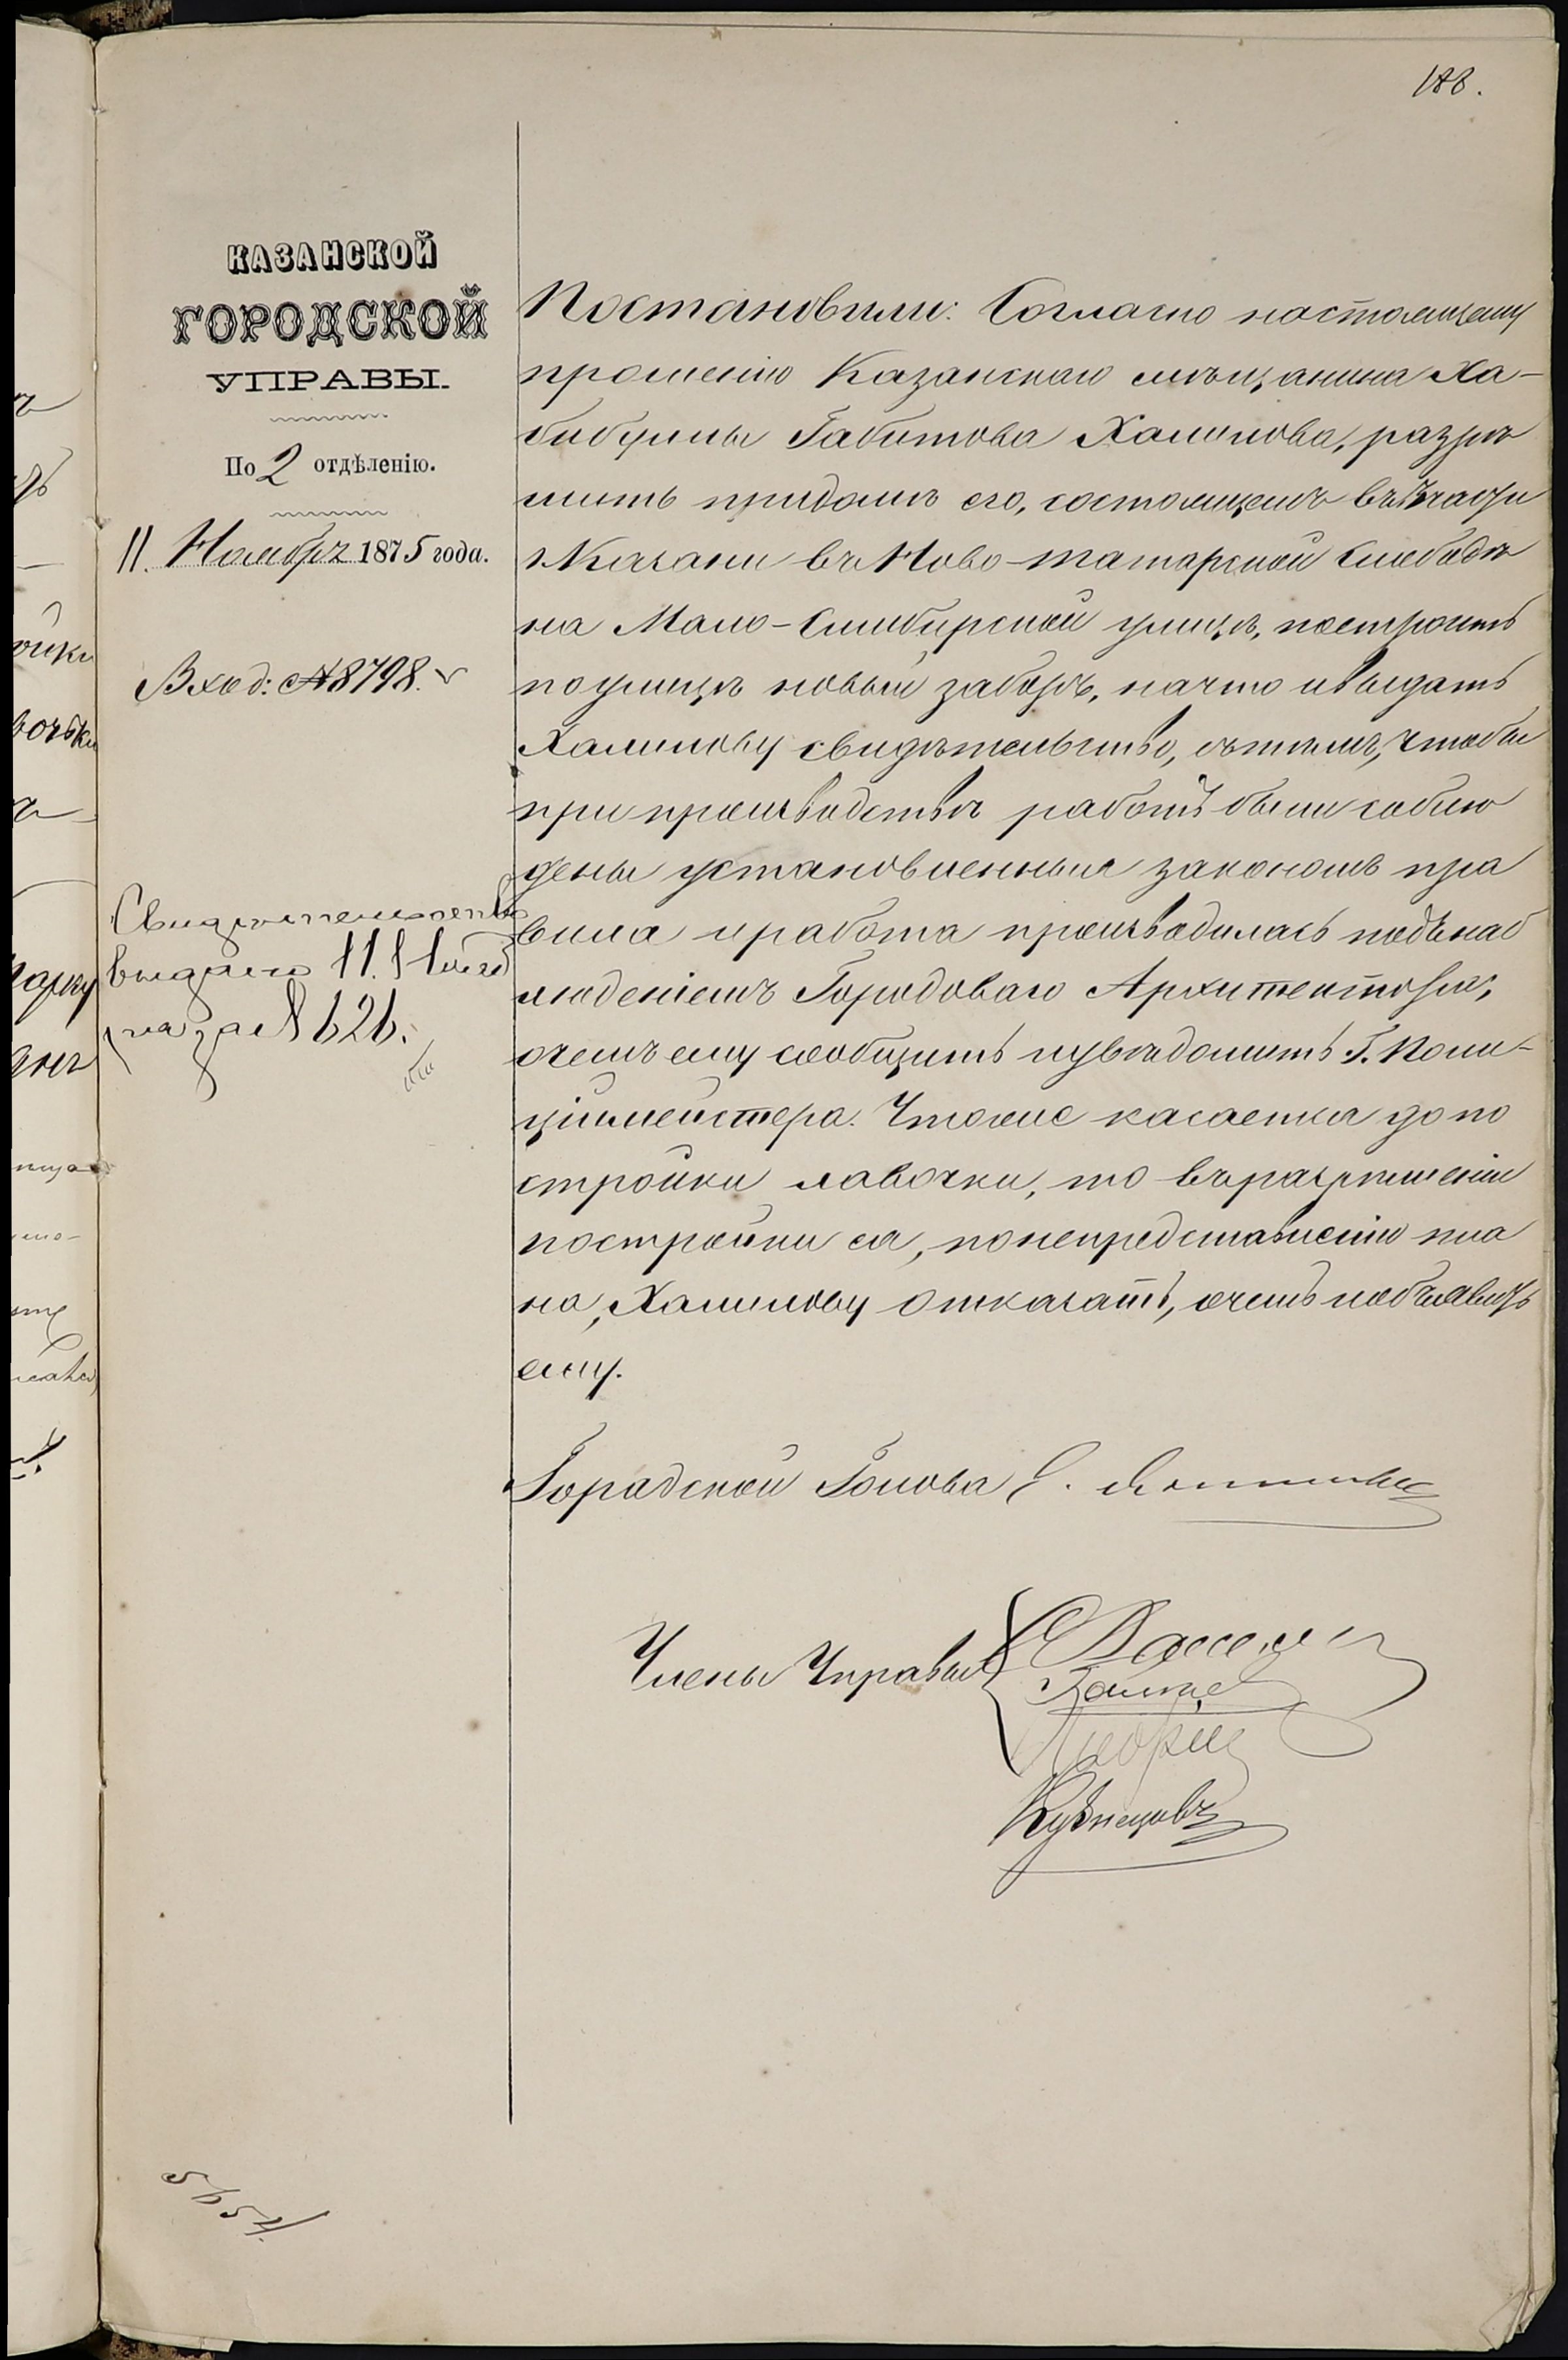 188.
КАЗАНСКОЙ
ГОРОДСКОЙ
УПРАВЫ.
По 2 отдѣленію.
11. Ноября 1875 года.
Вход: № 8798.
Свидѣтельство
выдано 11. Нояб
за № 626.
Постановили: Согласно настоящему
прошенію Казанскаго мѣщанина Ха-
бибуллы Габитова Халилова, разрѣ
шить при домѣ его, состоящемъ въ части
г. Казани въ Ново-татарской Слободѣ
на Мало-Симбирской улицѣ, построить
по улицѣ новый заборъ, на что и выдать
Халилову свидѣтельство, съ тѣмъ, чтобы
при производствѣ работъ были соблю
дены установленныя закономъ пра
вила и работа производилась подъ наб
людениемъ Городоваго Архитектора,
о чемъ ему сообщить и увѣдомить Г. Поли-
ціймейстера. Что же касается до по
стройки лавочки, то въ разрѣшеніи
постройки ея, по непредставленію пла
на, Халилову отказать, о чемъ и объявить
ему.
Городской Голова
Члены Управы
Кузнецовъ